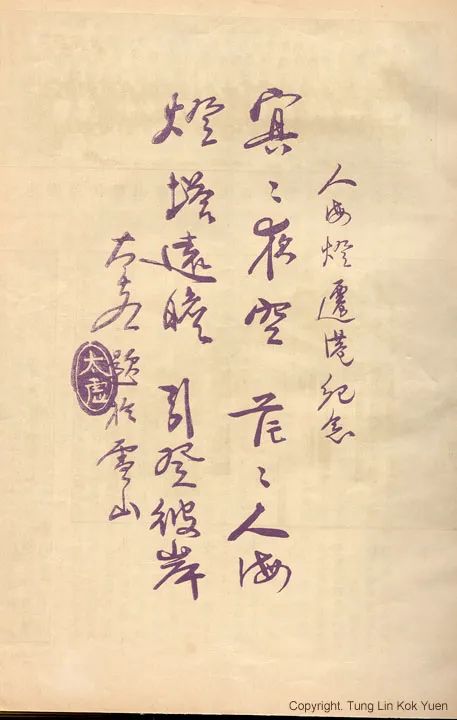 人海燈遷港紀念
冥〻夜空 茫〻人海
燈塔遠瞻 引登彼岸
太虛題於雲山
太虛
Copyright. Tung Lin Kok Yuen